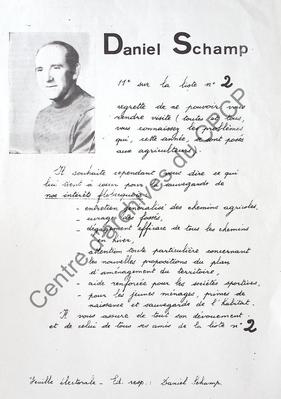 Daniel Schamp
11e sur la liste n° 2
regrette de ne pouvoir vous
rendre visite (toutes et) tous,
vous connaissez les problèmes
qui, cette année, se sont posés
aux agriculteurs.
Il souhaite cependant vous dire ce qui
lui tient à coeur pour la sauvegarde de
nos intérêts
- entretien généralisé des chemins agricoles,
- curages des fossés,
- dégagement efficace de tous les chemins
en hiver,
- attention toute particulière concernant
les nouvelles propositions du plan
d'aménagement du territoire,
- aide renforcée pour les sociétés sportives,
- pour les jeunes ménages, primes de
naissance et sauvegarde de l'habitat.
Il vous assure de tout son dévouement
et de celui de tous ses amis de la liste n° 2
Feuille électorale - Ed. resp.: Daniel Schamp.
Centre d'archives du CRECP